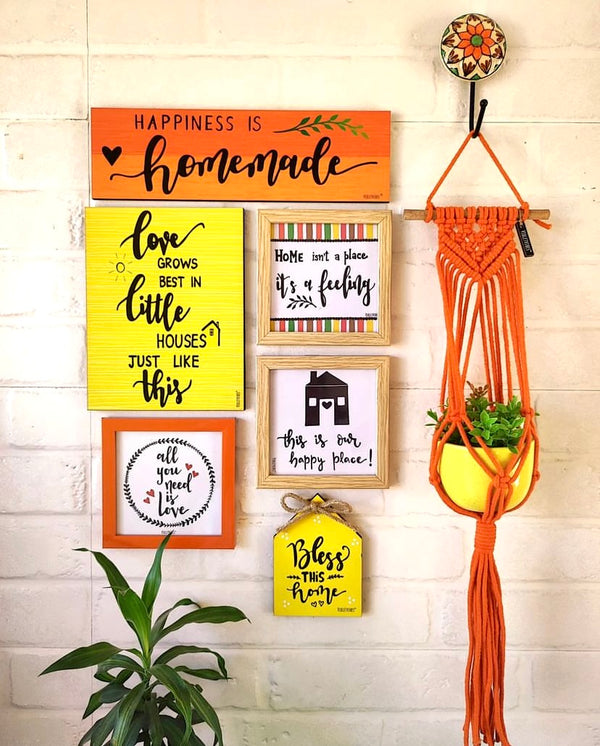 HAPPINESS IS
homemade
love
GROWS
BEST IN
little
HOUSES
JUST LIKE
this
HOME isn't a place
it's a feeling
this is our
happy place!
all
you
need
is
Love
Bless
THIS
home